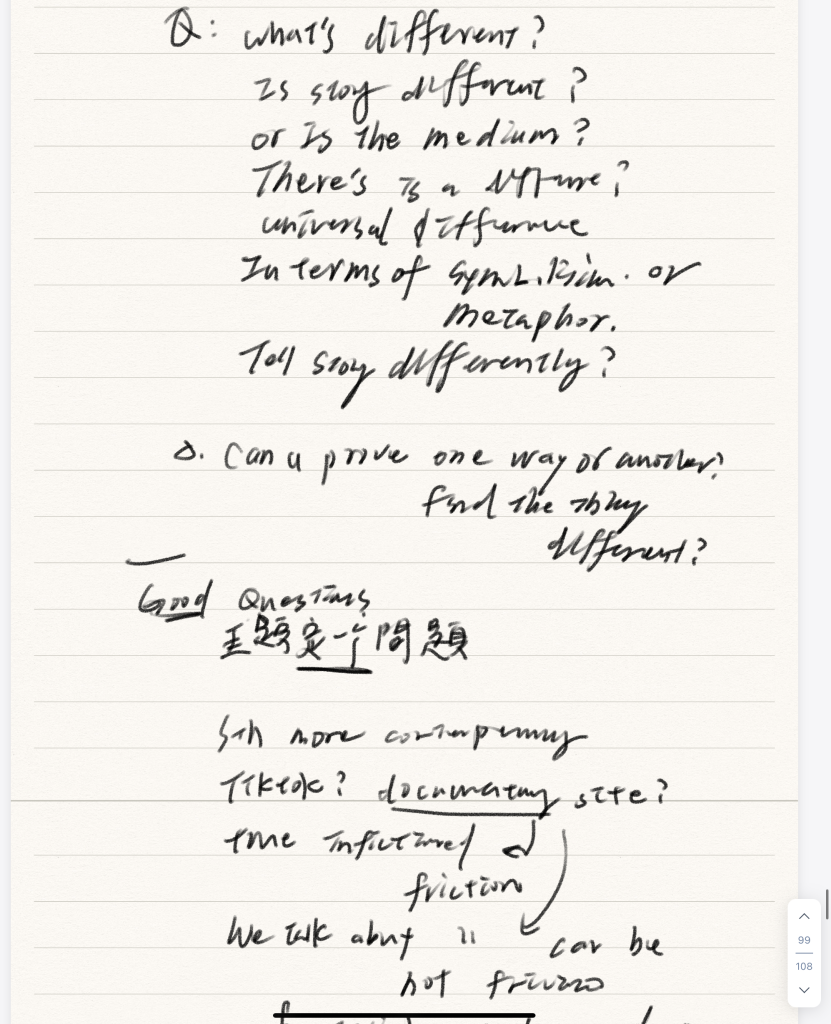 Q: what's different?
Is stoy different?
or Is the medium?
There's Is a difference?
universal difference
In terms of symbolism. or
metaphor.
Tell stoy differently?
Δ. Can u prove one way or another?
find the thing
different?
Good Questions
主題定一个問題
Sth more contemporary
Tiktok? documentary site?
time
friction
We talk about " can be
not
99
108